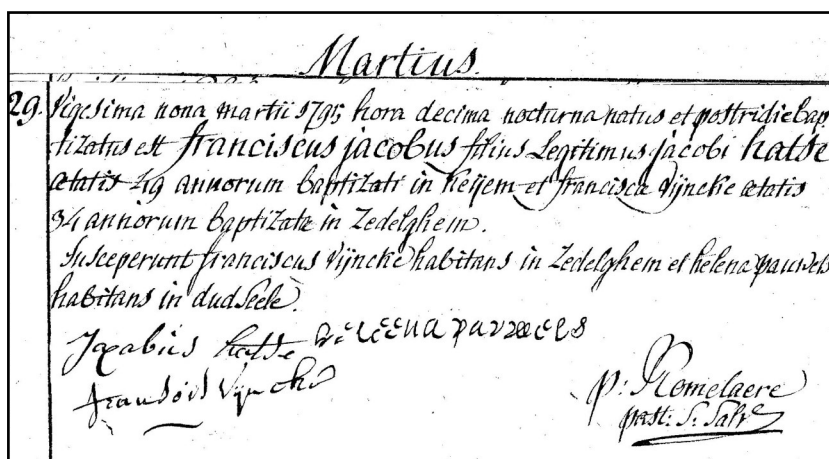 Martius.
29. Vigesima nona martii 1795 hora decima nocturna natus et postridie bap
tizatus est franciscus jacobus filius Legitimus jacobi hatse
ætatis 49 annorum baptizati in keijem et francisca Vijncke ætatis
34 annorum baptizatæ in Zedelghem.
Susceperunt franciscus Vijncke habitans in Zedelghem et helena pauwels
habitans in dudseele.
Jacabus hatse heleena pauwels
fransóis Vijncke
p: Romelaere
past: S: Salv